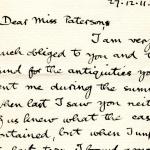 29.12.11.
Dear Miss Paterson
I am very
much obliged to you and t
und for the antiquities yo
nt me during the summ
hen last I saw you neit
us knew what the cas
ontained, but when I unp